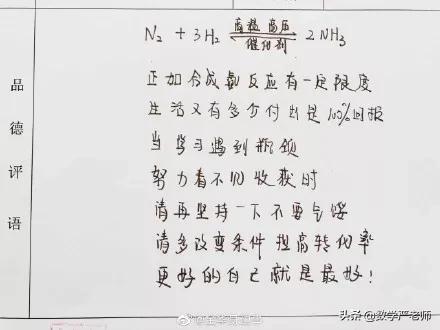 品德评语
N₂ + 3H₂ ⇌ 2NH₃
高温 高压
催化剂
正如合成氨反应有一定限度
生活又有多少付出是100%回报
当学习遇到瓶颈
努力看不见收获时
请再坚持一下不要气馁
请多改变条件 提高转化率
更好的自己就是最好!
头条 @数学严老师